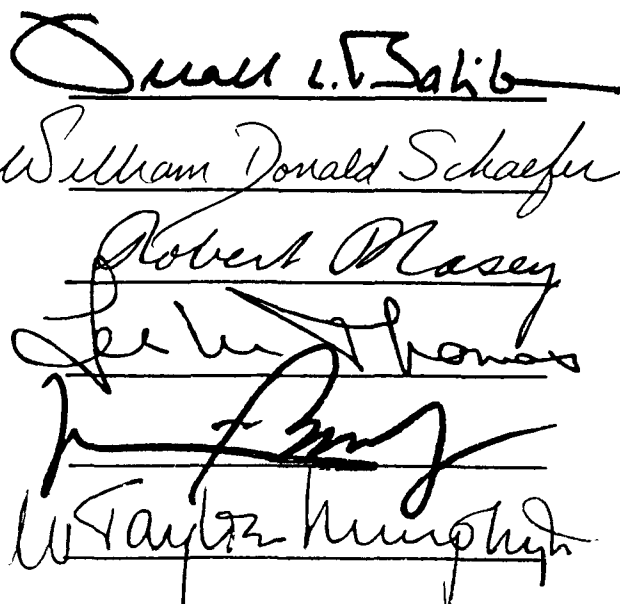 Gerald L. Baliles
William Donald Schaefer
Robert P Casey
Lee M. Thomas
W Tayloe Murphy Jr